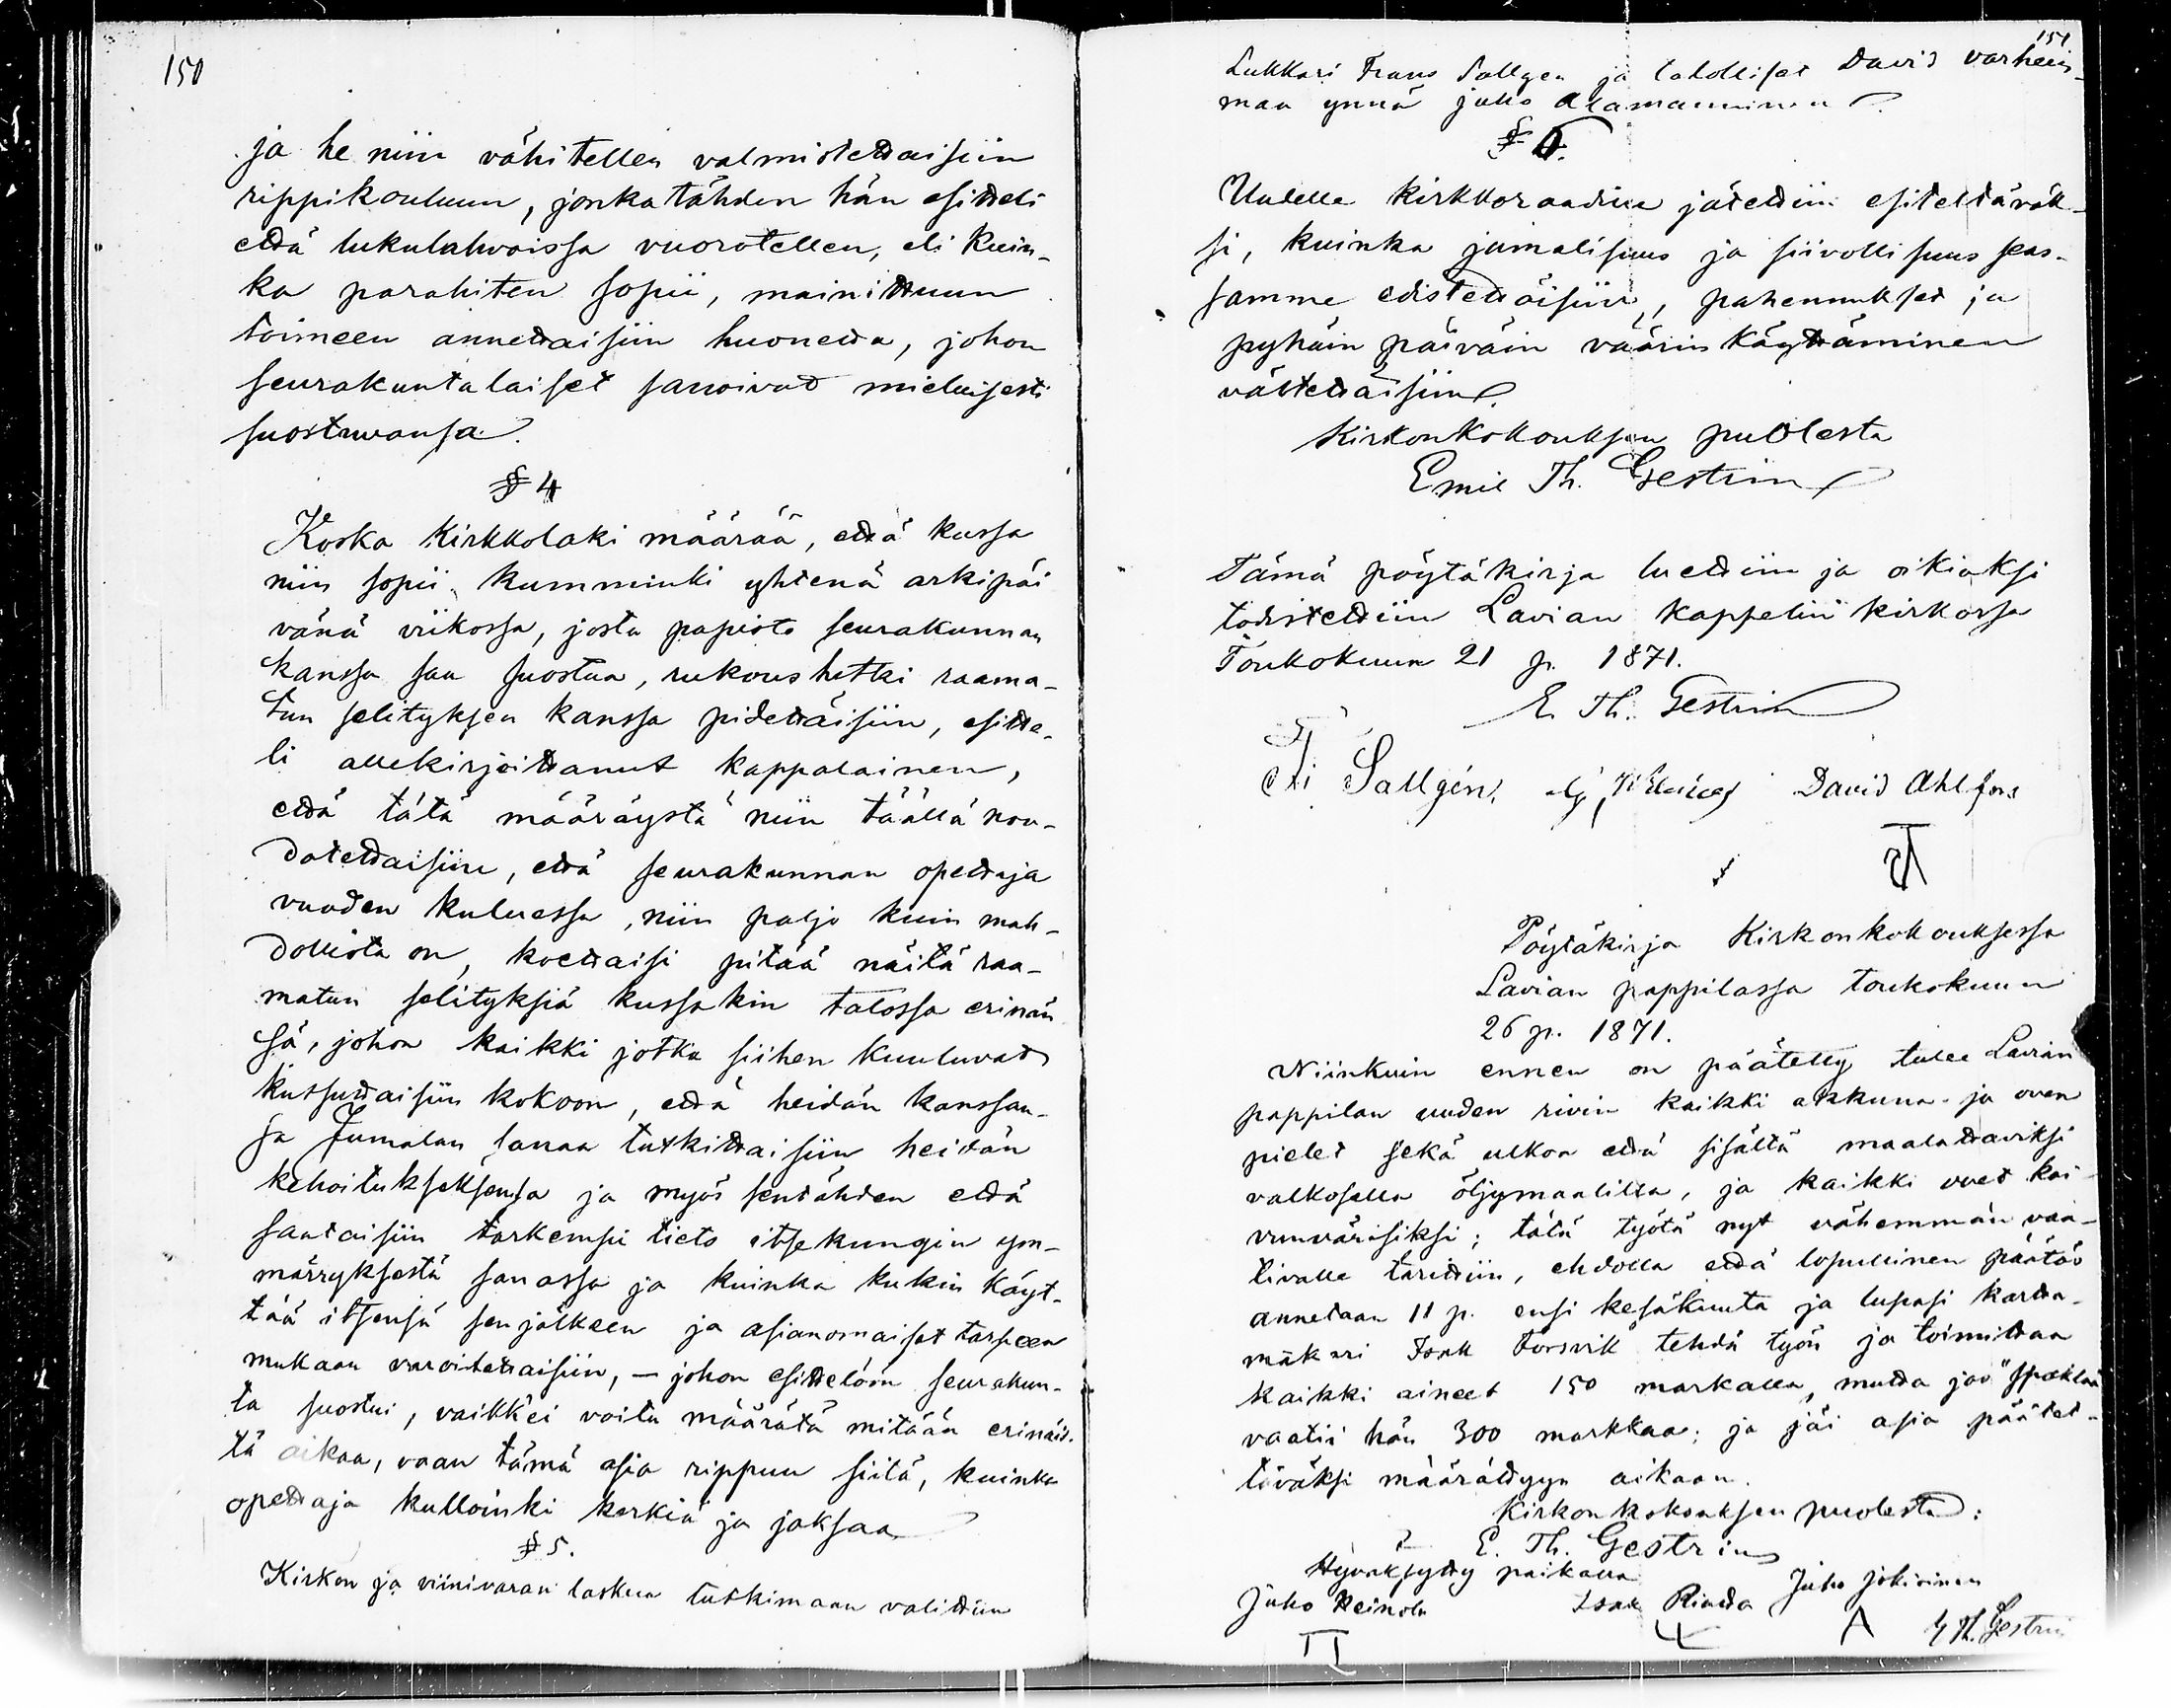 150
ja he niin vähitellen valmistettaisiin
rippikouluun, jonka tähden hän esitteli
että lukulahvoissa vuorotellen, eli kuin-
ka parahiten sopii, mainittuun
toimeen annettaisiin huonetta, johon
seurakuntalaiset sanoivat mieluisesti
suostuvansa.
§ 4
Koska Kirkkolaki määrää, että kussa
niin sopii kumminki yhtenä arkipäi
vänä viikossa, josta papisto seurakunnan
kanssa saa suostua, rukoushetki raama-
tun selityksen kanssa pidettäisiin, esitte-
li allekirjoittanut kappalainen,
että tätä määräystä niin täällä nou-
datettaisiin, että seurakunnan opettaja
vuoden kuluessa, niin paljo kuin mah-
dollista on, koettaisi pitää näitä raa-
matun selityksiä kussakin talossa erinän
sä, johon kaikki jotka siihen kuuluvat
kutsuttaisiin kokoon, että heidän kanssan-
sa Jumalan sanaa tutkittaisiin heidän
kehoitukseksensa ja myös sentähden että
saataisiin tarkempi tieto itsekungin ym-
märryksestä sanassa ja kuinka kukin käyt-
tää itsensä sen jälkeen ja asianomaiset tarpeen
mukaan varoitettaisiin, — johon esittelöön seurakun-
ta suostui, vaikk'ei voitu määrätä mitään erinäis-
tä aikaa, vaan tämä asia rippuu siitä, kuinka
opettaja kulloinki kerkiä ja jaksaa
§ 5.
Kirkon ja viinivaran laskua tutkimaan valittiin
151
Lukkari Frans Sallgen ja talolliset David Varhein-
maa ynnä Juho Alamanninen
§ 6.
Uudelle kirkkoraadille jätettiin esiteltäväk-
si, kuinka jumalisuus ja siivollisuus seas-
samme edistettäisiin, pahennukset ja
pyhäin päiväin väärin käyttäminen
vältettäisiin.
Kirkonkokouksen puolesta
Emil Th. Gestrin
Tämä pöytäkirja luettiin ja oikiaksi
todistettiin Lavian kappelin kirkossa
Toukokuun 21 p. 1871.
E. Th. Gestrin
Sallgén. David Ahlfors
Pöytäkirja Kirkonkokouksessa
Lavian pappilassa toukokuun
26 p. 1871.
Niinkuin ennen on päätetty tulee Lavian
pappilan uuden rivin kaikki akkuna- ja oven
pielet sekä ulkoa että sisältä maalattaviksi
valkosella öljymaalilla, ja kaikki ovet kai-
vunvärisiksi; tätä työtä nyt vähemmän vaa-
tivalle tarittiin, ehdolla että lopullinen päätös
annetaan 11 p. ensi kesäkuuta ja lupasi kartta-
mäkari Isak Forsvik tehdä työn ja toimittaa
kaikki aineet 150 markalla, mutta jos
vaatii hän 300 markkaa; ja jäi asia päätet-
täväksi määrättyyn aikaan.
Kirkonkokouksen puolesta:
E. Th. Gestrin
Hyväksytty paikalla
Juho Heinola Isak Rinda Juho Jokioinen
E Th. Gestrin